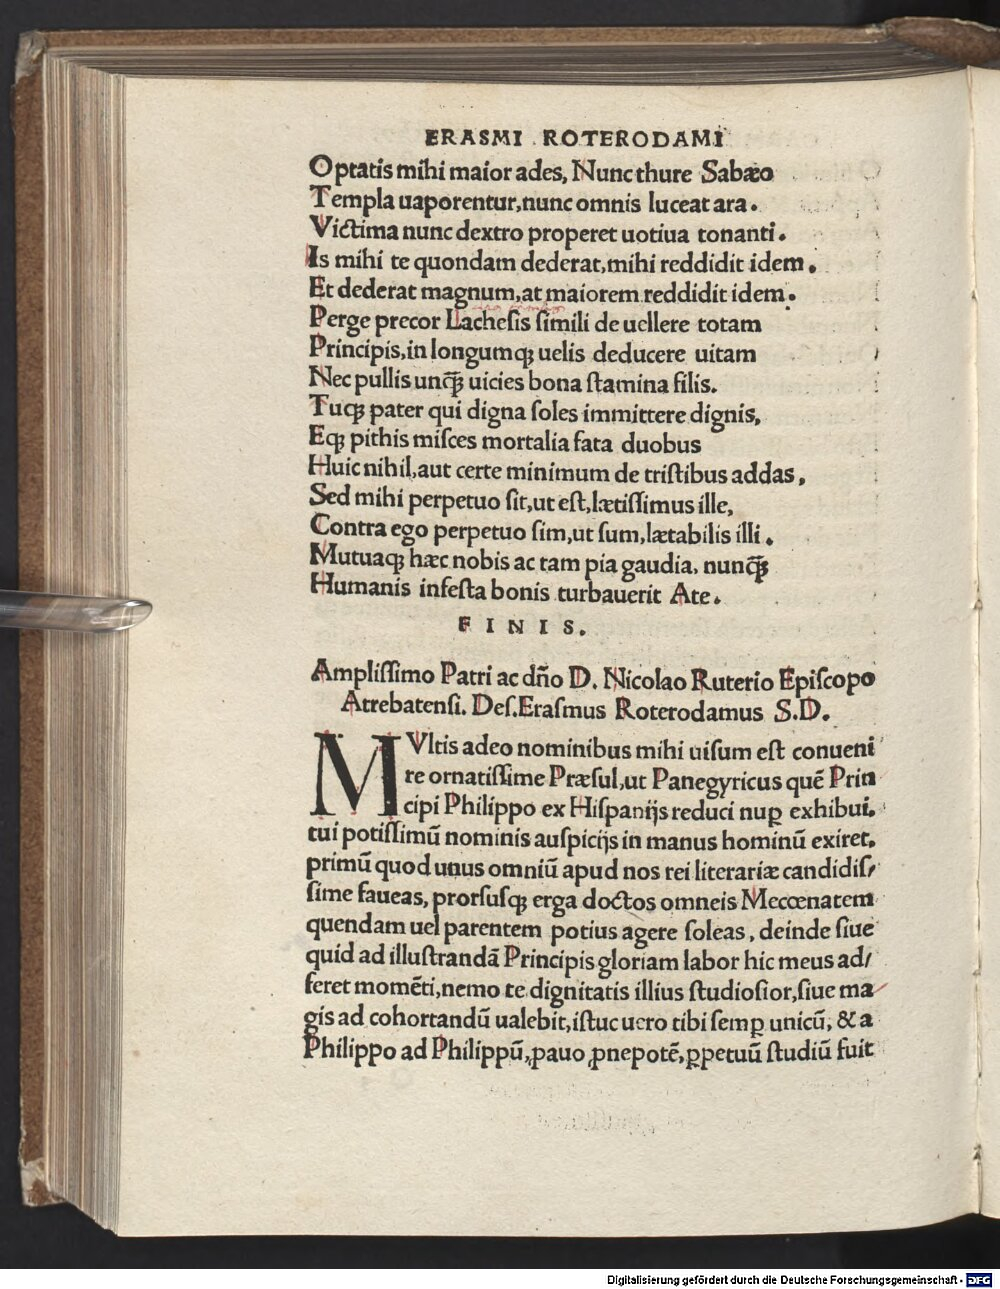 ERASMI . ROTERODAMI
Optatis mihi maior ades, Nunc thure Sabæo
Templa uaporentur,nunc omnis luceat ara.
Victima nunc dextro properet uotiua tonanti.
Is mihi te quondam dederat,mihi reddidit idem.
Et dederat magnum,at maiorem reddidit idem.
Perge precor Llachesis ſimili de uellere totam
Principis,in longumqꝫ uelis deducere uitam
Nec pullis unq̃ꝫ uicies bona ſtamina filis.
Tuqꝫ pater qui digna ſoles immittere dignis,
Eqꝫ pithis miſces mortalia fata duobus
Huic nihil,aut certe minimum de triſtibus addas,
Sed mihi perpetuo ſit,ut eſt,lætiſſimus ille,
Contra ego perpetuo ſim,ut ſum,lætabilis illi.
Mutuaqꝫ hæc nobis ac tam pia gaudia, nunq̃ꝫ
Humanis infeſta bonis turbauerit Ate.
FINIS.
Ampliſſimo Patri ac dño D. Nicolao Ruterio Epiſcopo
Atrebatenſi. Deſ.Eraſmus Roterodamus S.D.
MVltis adeo nominibus mihi uiſum eſt conueni
re ornatiſſime Præſul,ut Panegyricus quẽ Prin
cipi Philippo ex Hiſpanijs reduci nuꝑ exhibui,
tui potiſſimũ nominis auſpicijs in manus hominũ exiret,
primũ quod unus omniũ apud nos rei literariæ candidiſ/
ſime faueas, prorſuſqꝫ erga doctos omneis Mecœnatem
quendam uel parentem potius agere ſoleas, deinde ſiue
quid ad illuſtrandã Principis gloriam labor hic meus ad/
feret momẽti,nemo te dignitatis illius ſtudioſior,ſiue ma
gis ad cohortandũ ualebit,iſtuc uero tibi ſemꝑ unicũ, & a
Philippo ad Philippũ,ꝓauo ꝓnepotẽ,ꝑpetuũ ſtudiũ fuit
Digitalisierung gefördert durch die Deutsche Forschungsgemeinschaft - DFG